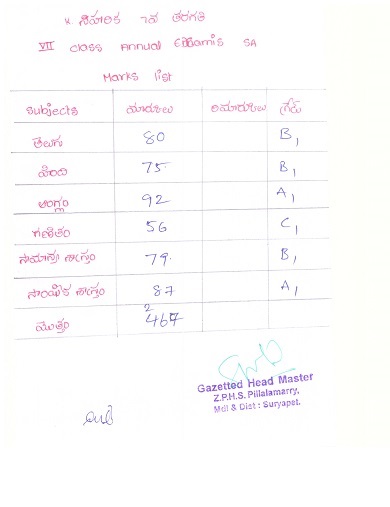 K. నిహారిక 7వ తరగతి
VII class Annual Exams SA
Marks list
subjects మార్కులు గ్రేడ్
తెలుగు 80 B1
హింది 75 B1
ఆంగ్లం 92 A1
గణితం 56 C1
సామాన్య శాస్త్రం 79 B1
సాంఘిక శాస్త్రం 87 A1
మొత్తం
Gazetted Head Master
Z.P.H.S. Pillalamarry,
Mdl & Dist : Suryapet.